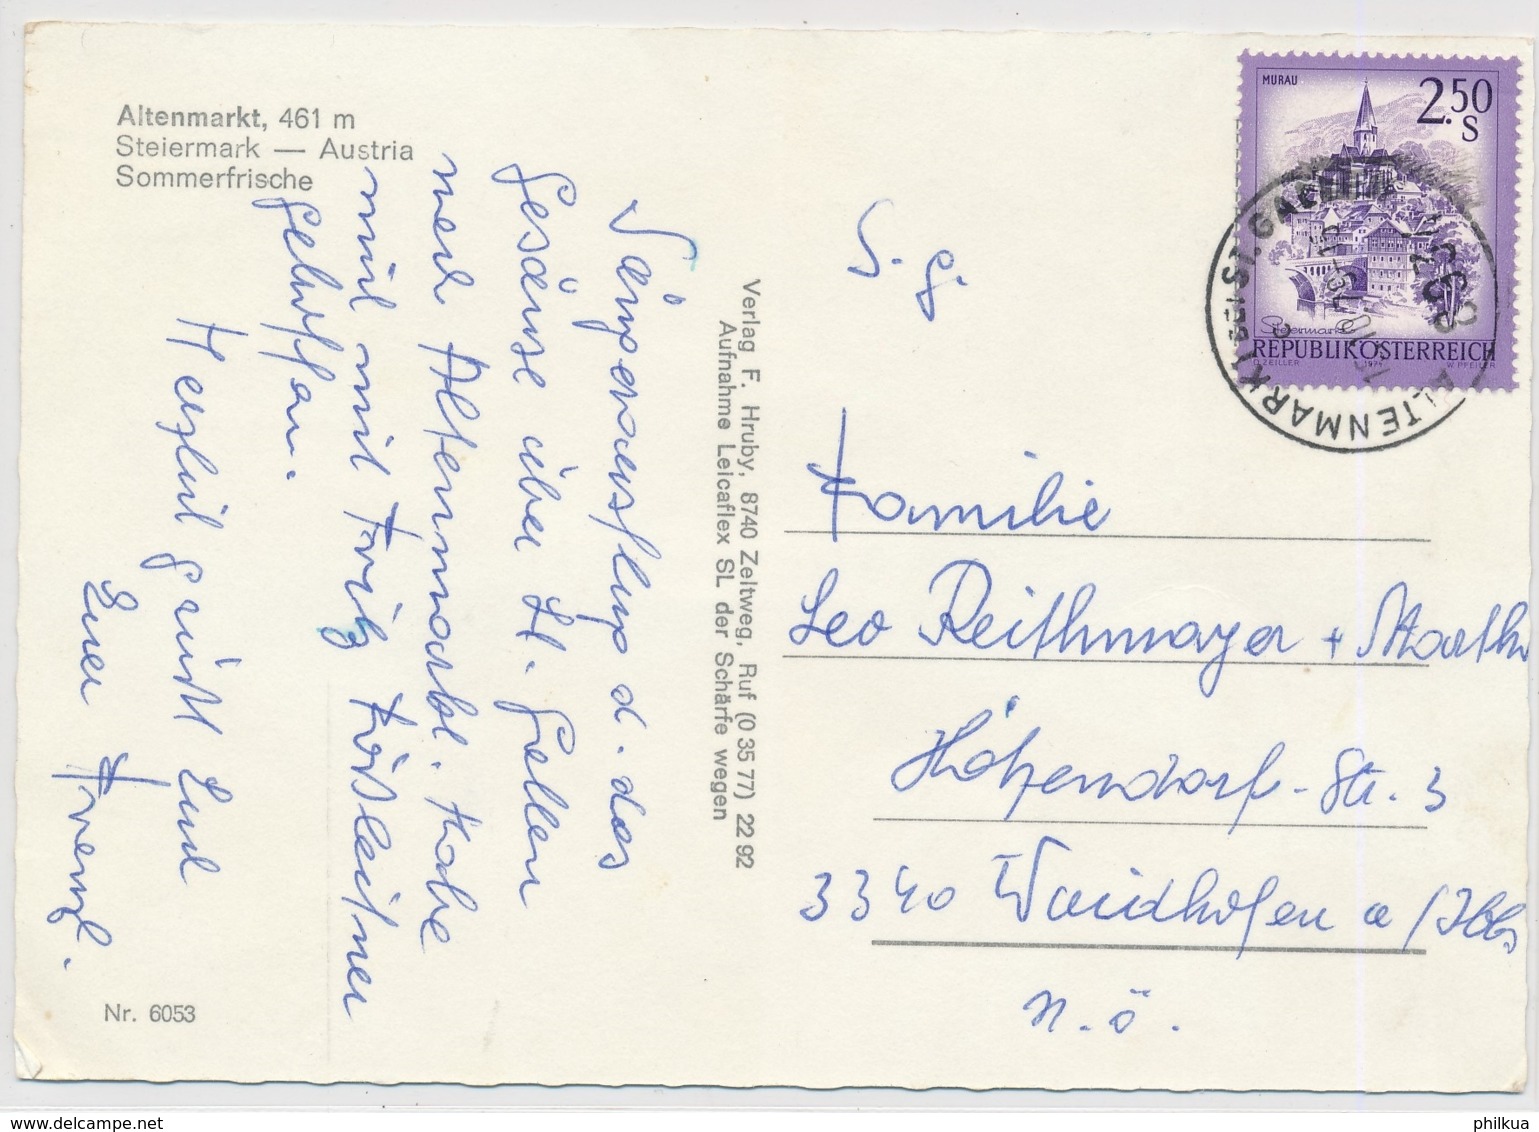 Altenmarkt, 461 m
Steiermark — Austria
Sommerfrische
d. das
Gesäuse über St. Gallen
nach Altenmarkt. Habe
mich mit Fritz
getroffen.
Herzlich grüßt Euch
Euer Frenzl.
Nr. 6053
Verlag F. Hruby, 8740 Zeltweg, Ruf (0 35 77) 22 92
Aufnahme Leicaflex SL der Schärfe wegen
MURAU
2.50
S
Steiermark
REPUBLIK ÖSTERREICH
O. ZEILLER
W. PFEILER
ALTENMARKT
S. g.
Familie
Leo Reithmayer + Martha
Hötzendorf-Str. 3
3340 Waidhofen a/Ybbs
N.Ö.
www.delcampe.net
philkua